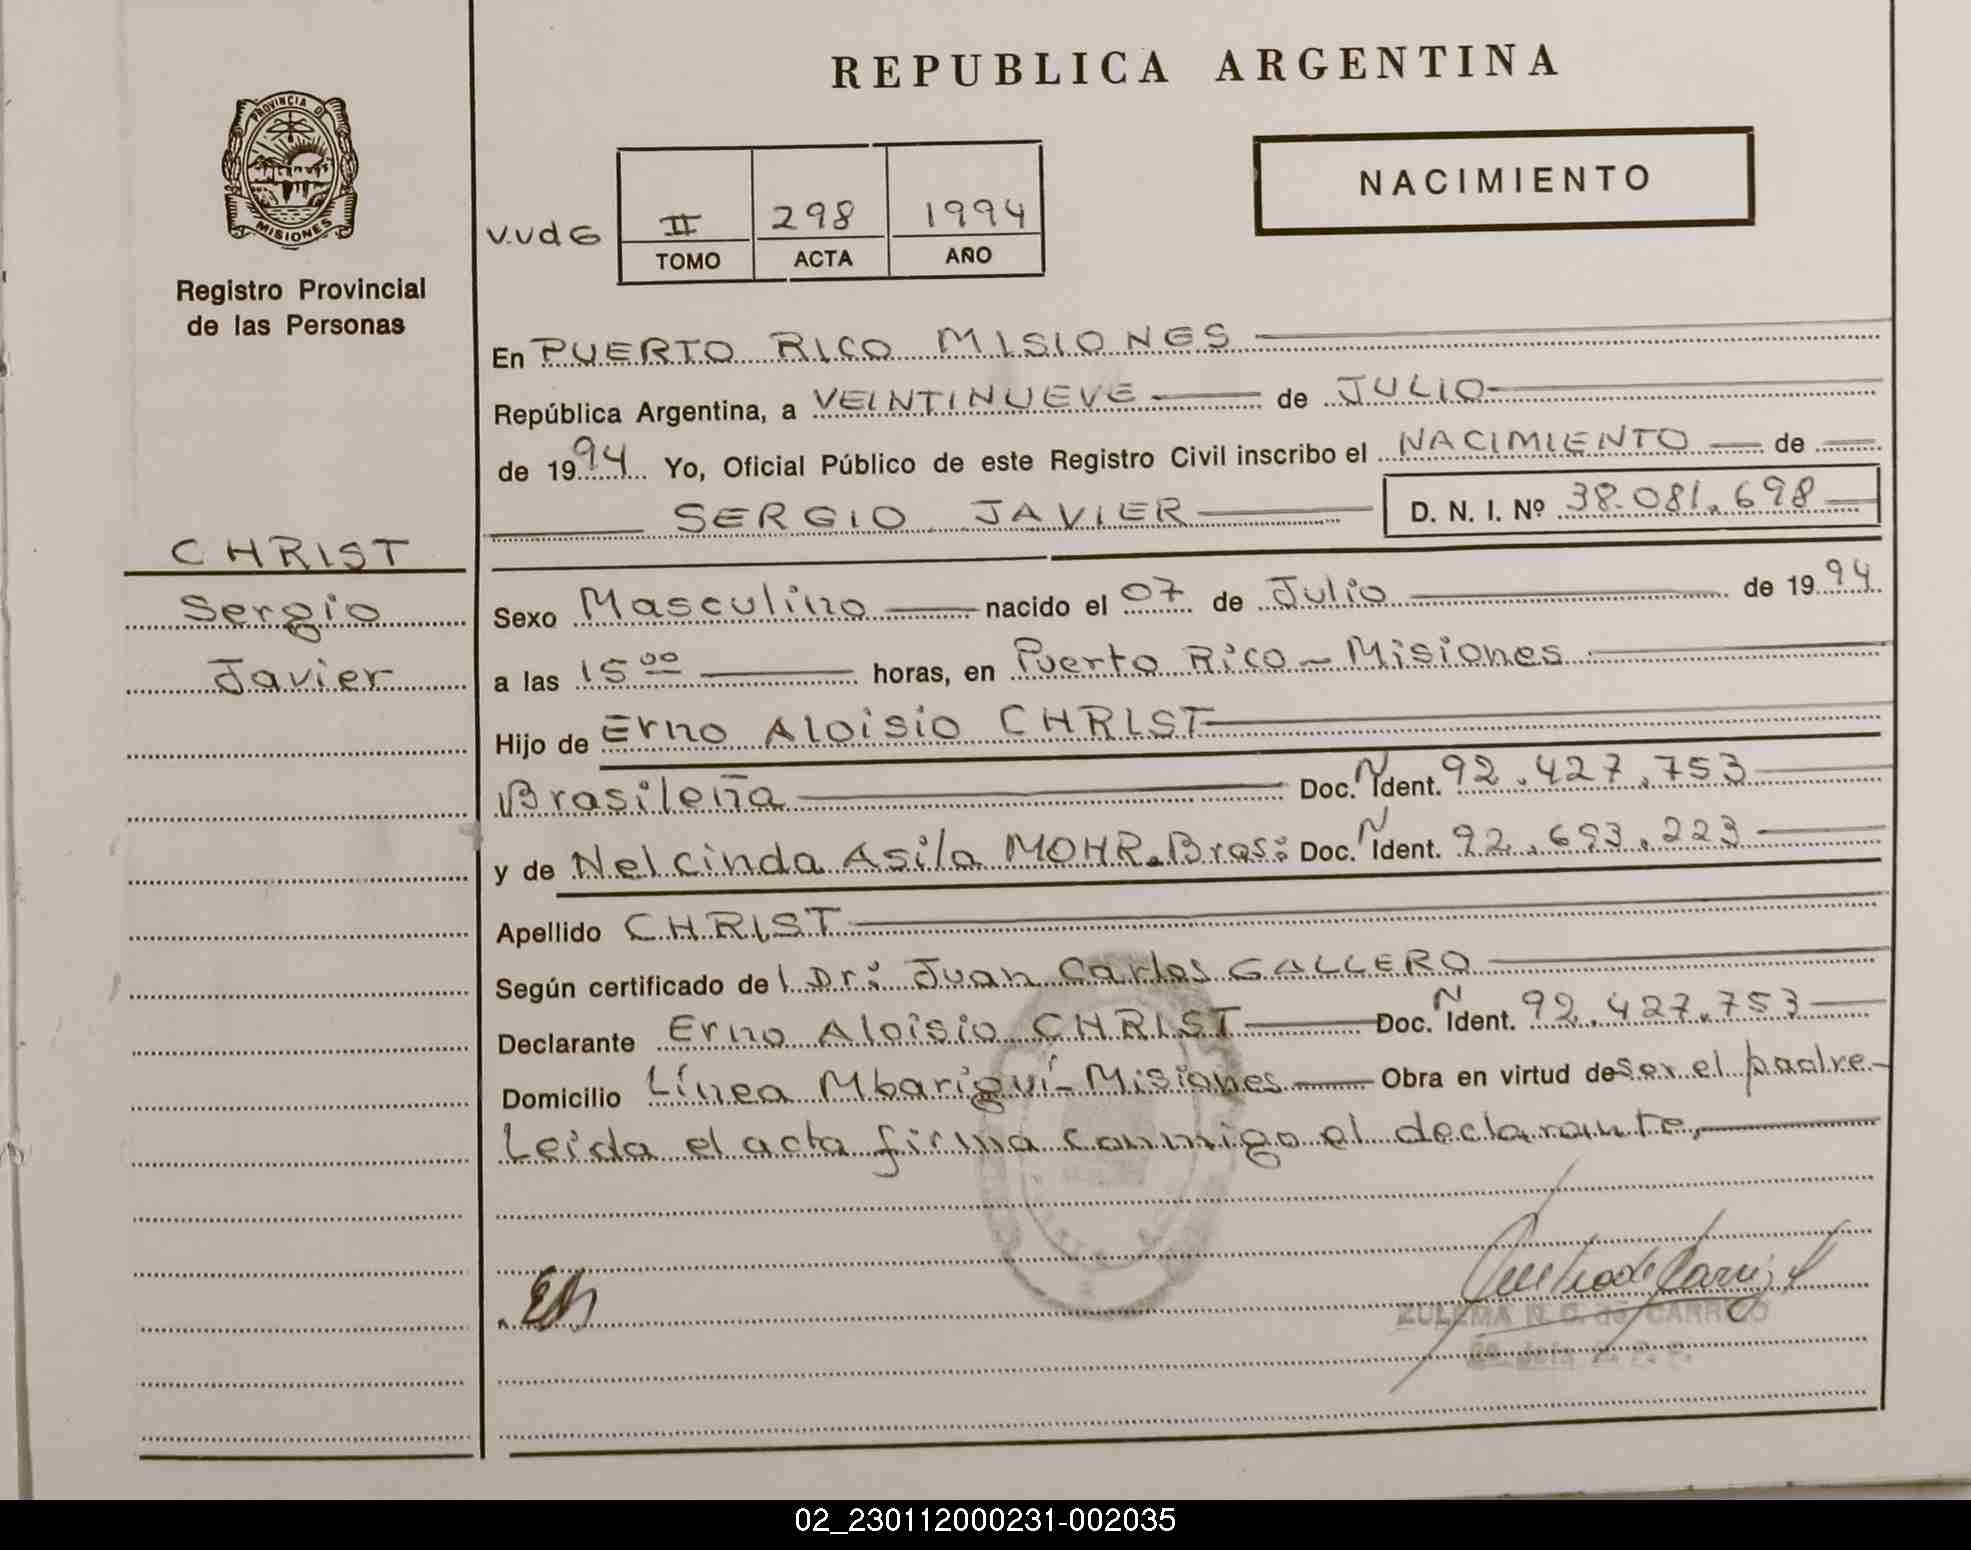 REPUBLICA ARGENTINA
PROVINCIA DE
MISIONES
Registro Provincial
de las Personas
V.V d G
II 298 1994
TOMO ACTA AÑO
NACIMIENTO
En PUERTO RICO MISIONES
República Argentina, a VEINTINUEVE de JULIO
de 1994 Yo, Oficial Público de este Registro Civil inscribo el NACIMIENTO de
SERGIO JAVIER D. N. I. Nº 38.081.698
CHRIST
Sergio
Javier
Sexo Masculino nacido el 07 de Julio de 1994
a las 15 00 horas, en Puerto Rico - Misiones
Hijo de Erno Aloisio CHRIST
Brasileña Doc. N Ident. 92.427.753
y de Nelcinda Asila MOHR. Bras: Doc. N Ident. 92.693.223
Apellido CHRIST
Según certificado de l Dr: Juan Carlos GALLERO
Declarante Erno Aloisio CHRIST Doc. N Ident. 92.427.753
Domicilio Línea Mbariguí - Misiones Obra en virtud de ser el padre -
Leida el acta firma conmigo el declarante,
ZULEMA N. G. de CARRIZO
02_230112000231-002035